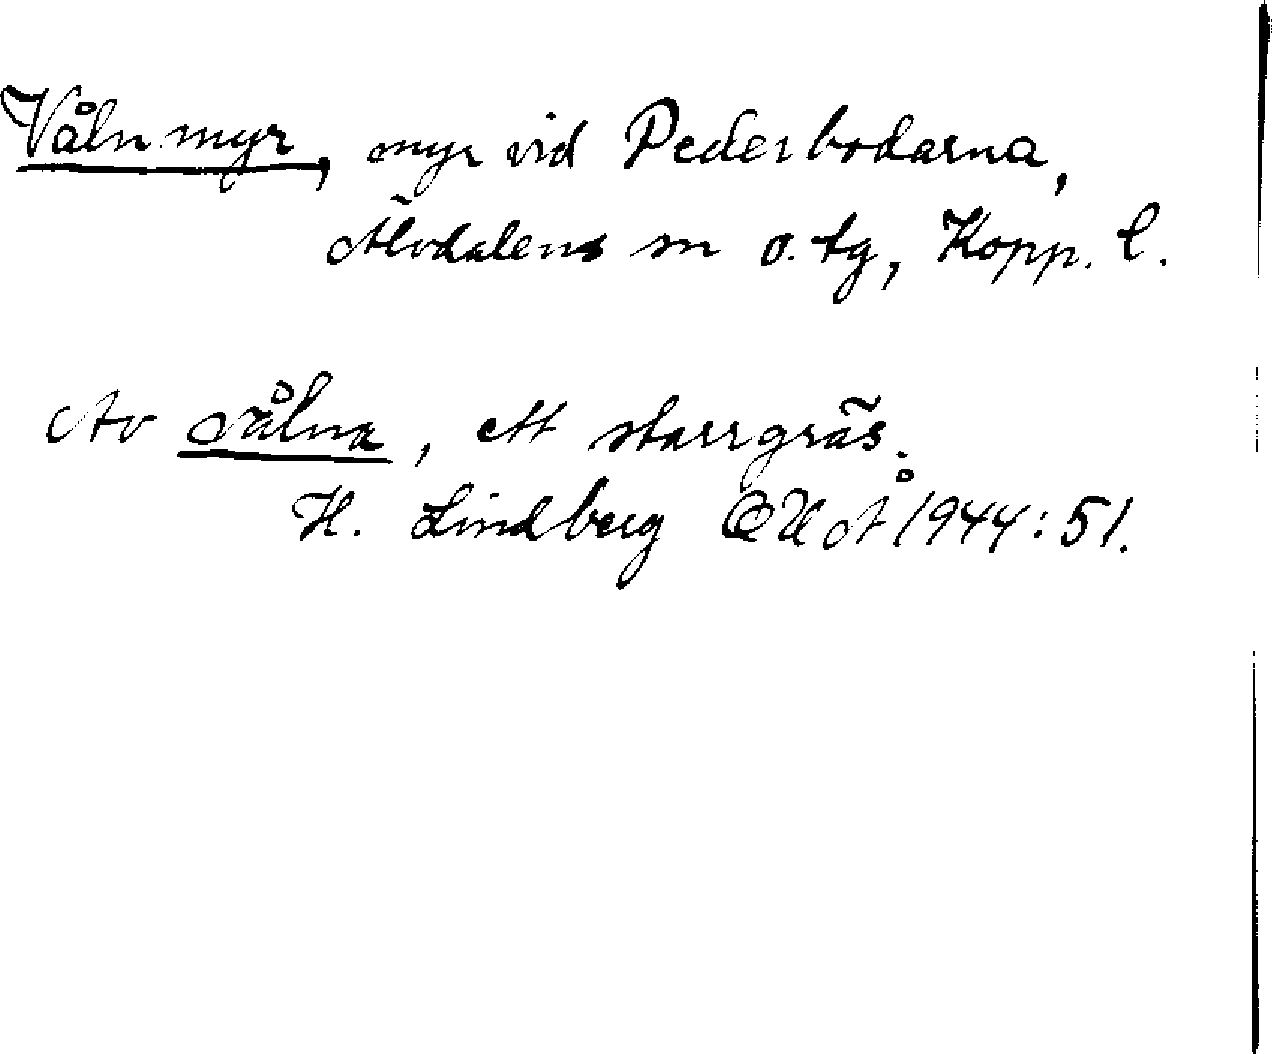 Våln myr, myr vid Pederbodarna,
Älvdalens sn o. tg, Kopp. l.
Av vålna, ett starrgräs.
H. Lindberg OUÅ 1944:51.